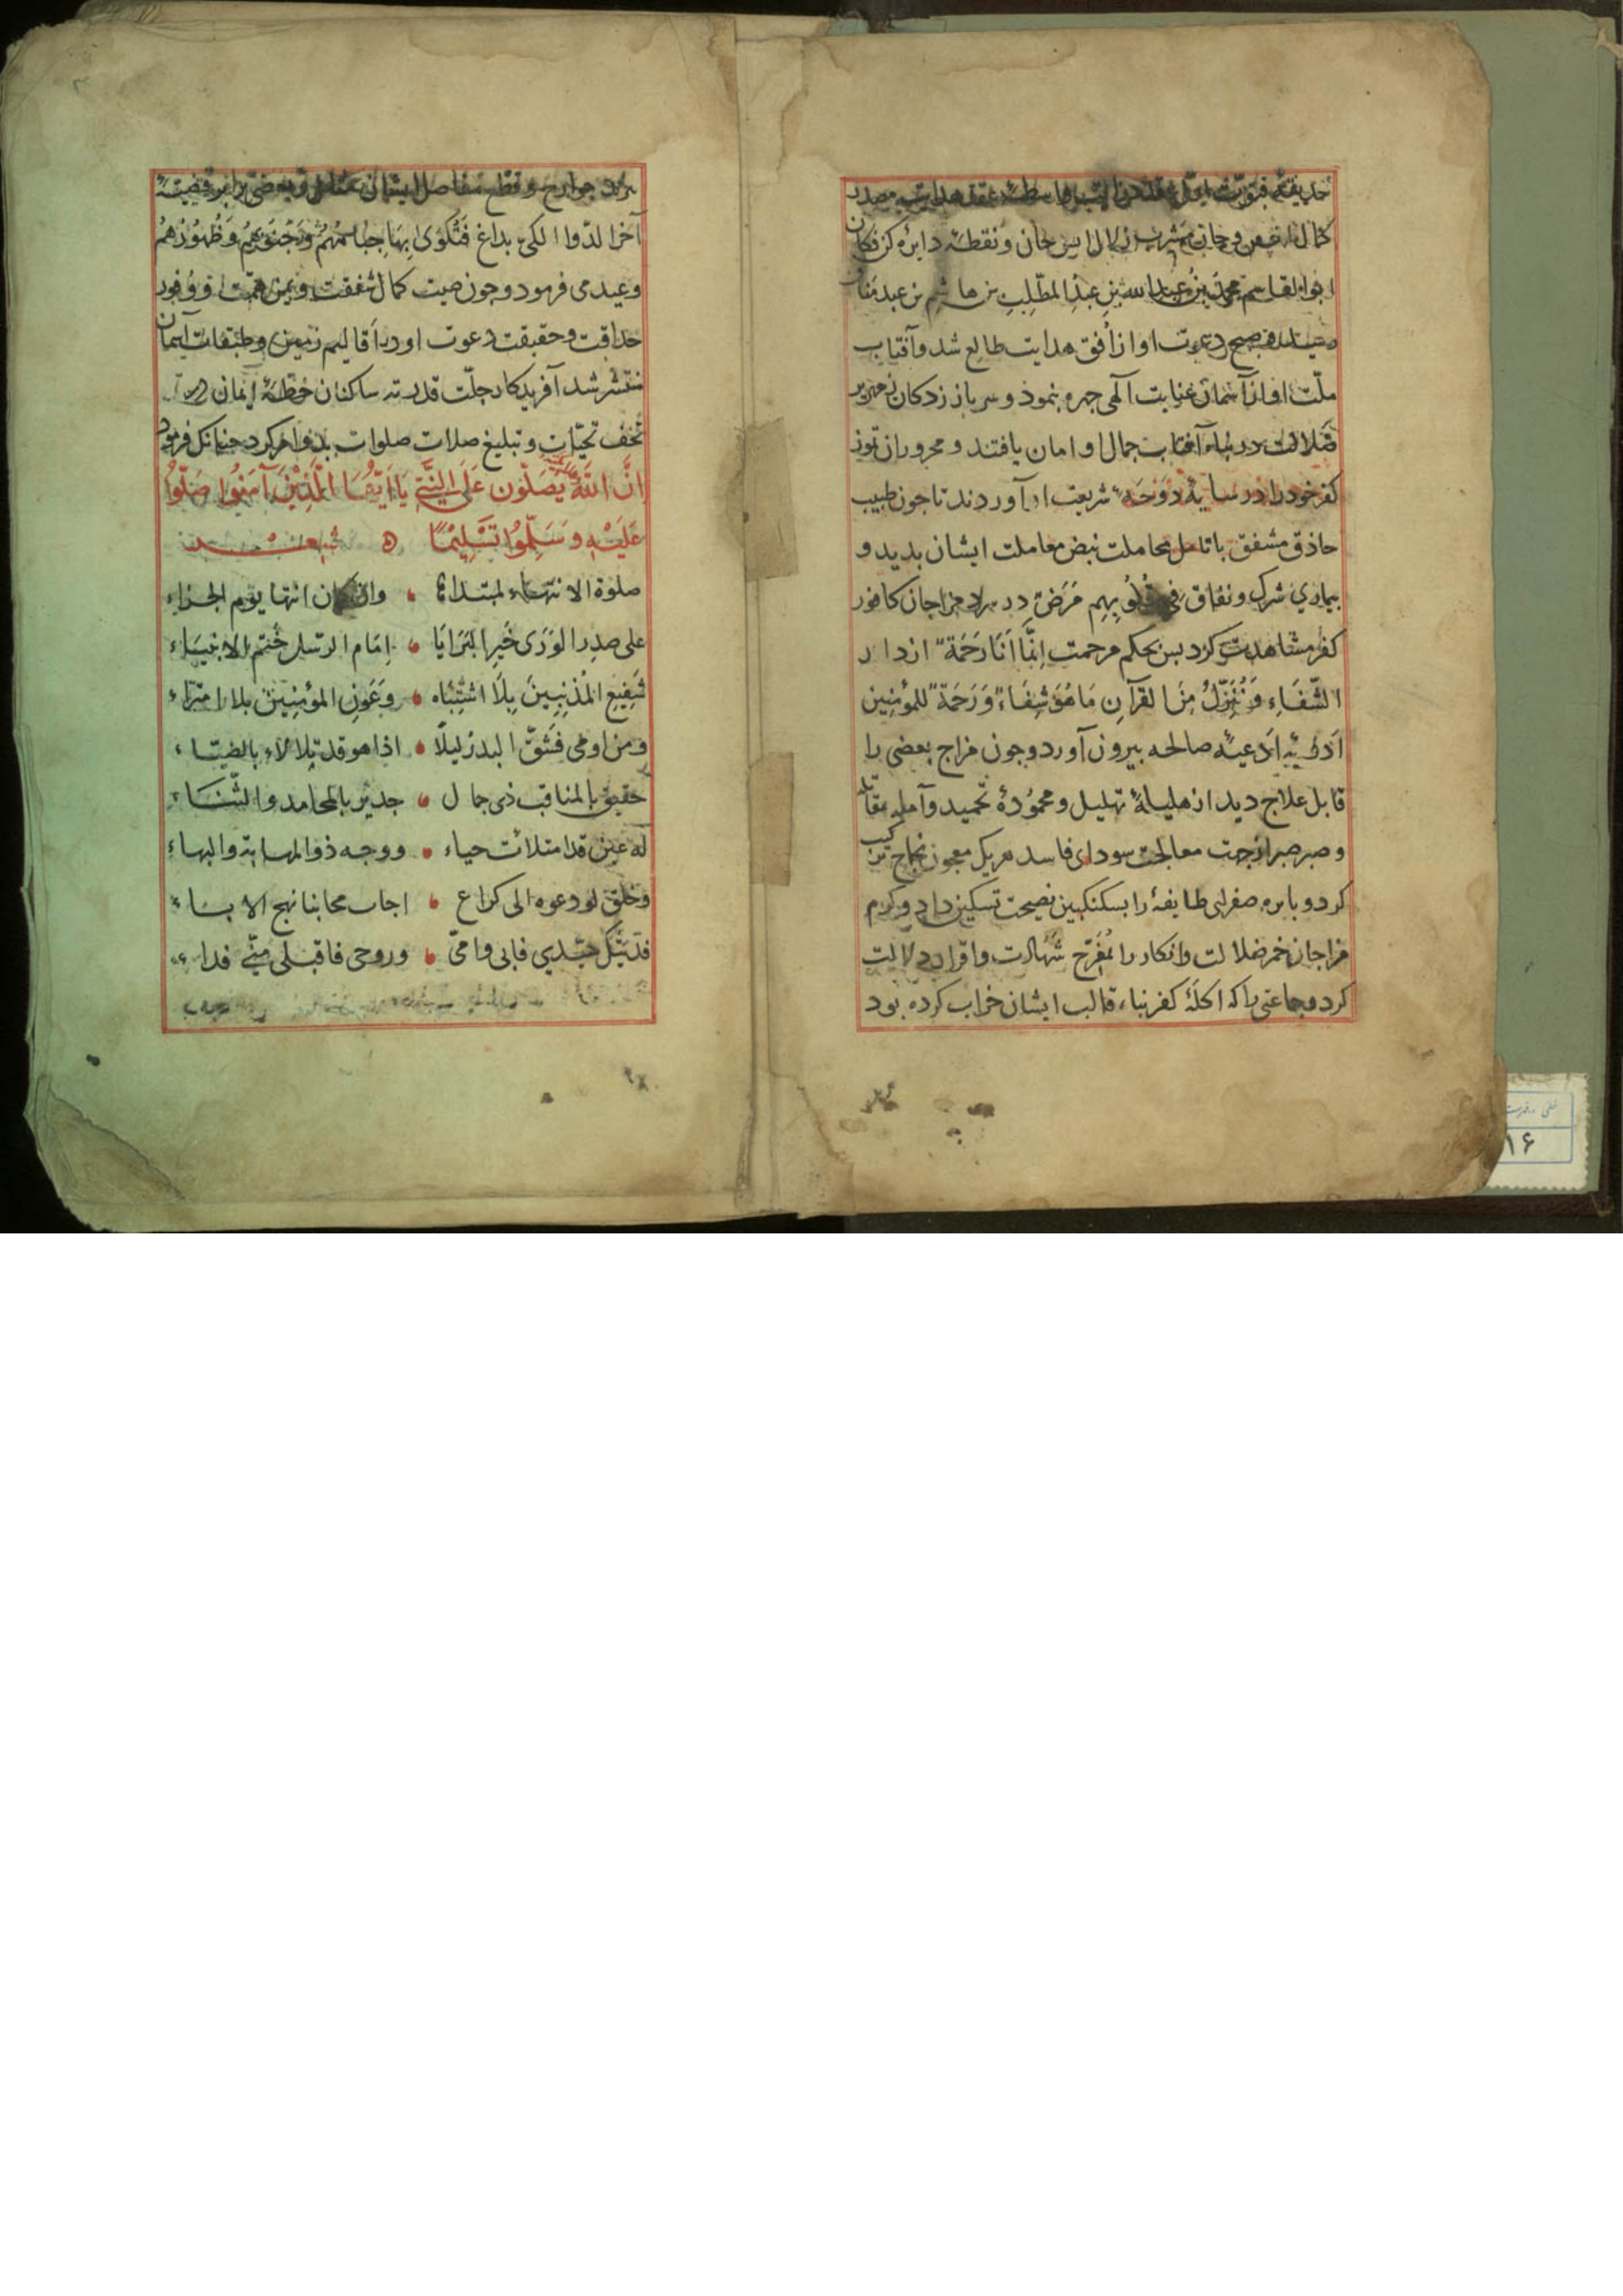 کمال
ابوالقاسم محمد بن عبدالله بن عبد المطّلب بن هاشم بن عبد مناف
صبح دعوت او از اُفق هدایت طالع شد و آفتاب
ملّت او از آسمان عنایت آلهی چهره بنمود و سرباز زدکان زمهریر
ضلالت در پناه آفتاب جمال او امان یافتند و محروران تموز
کفر خود را در سایهٔ دَوحَهٔ شریعت او آوردند تا جون طبیب
حاذق مشفق با تامل مجاملت نبض معاملت ایشان بدید و
بیماری شرک و نفاق فِی قُلُوبِهِم مَرَضٌ در سراد مزاجان کافور
کفر مشاهدت کرد بس بحکم مرحمت اِنَّمَا اَنَا رَحمَةٌ از دار
الشّفَاءِ وَ نُنَزِّلُ مِنَ القرآنِ مَا هُوَ شِفَاءٌ وَ رَحمَةٌ للمؤمِنِین
اَدویَه اَدعیَه صالحه بیرون آورد و جون مزاج بعضی را
قابل علاج دید از هلیلهٔ تهلیل و محمُودهٔ تحمید و آمله
و صبر صبر از جهت معالجت سودای فاسد هر یک معجون نجاح ترکیب
کرد و بابره صفرای طایفهٔ را بسکنکبین نصیحت تسکین داد و کرم
مزاجان خمر ضلالت و انکار را بمُفَرّح شهادت و اقرار دلالت
کرد و جماعتی را که اکلهٔ کفر بناء قالب ایشان خراب کرده بود
جوارح و قطع مفاصل ایشان
آخر الدّوا الکیّ بداغ فَتُکوَی بِهَا جِبَاهُهُم وَ جُنُوبُهُم وَ ظُهُورُهُم
وعید می فرمود و جون صیت کمال شفقت و یمن همّت او و وُفور
حذاقت و حقیقت دعوت او در اَقالیم زمین و طبقات آسمان
منتشر شد آفریدکار جلّت قدرته ساکنان خطّهٔ ایمان را
تُحَف تحیّات و تبلیغ صلات صلوات بدو امر کرد چنانکه فرمود
اِنَّ اللهَ یُصَلُّون عَلَی النَّبِیّ یَا اَیُّهَا الَّذِینَ آمَنُوا صَلُّوا
عَلَیهِ وَ سَلِّمُوا تَسلِیمًا ه شعر
صلوة لا انتهاء لمبتداها • وان کان انتها یوم الجزاء
علی صدر الوَرَی خَیرِ البَرَایَا • اِمَام الرّسل خَتم الانبیَاء
شَفِیعِ المُذنِبِینَ بِلَا اشتِبَاه • وَ عَونِ المؤمِنِینَ بلا امتراء
و من اومی فَشَقَّ البدر لیلًا • اذا هو قد تلالاء بالضیَاء
حقیق بالمناقب ذی جمال • جدیر بالمحامد و الثّنَاءِ
له عین قد امتلأت حیاء • و وجه ذو المهابة و البهاء
و خلق لو دعوه الی کراع • اجاب مجانبا نهج الاباء
فدیتک سیّدی فابی و امّی • و روحی فاقبلی منّی فداء
۱۶